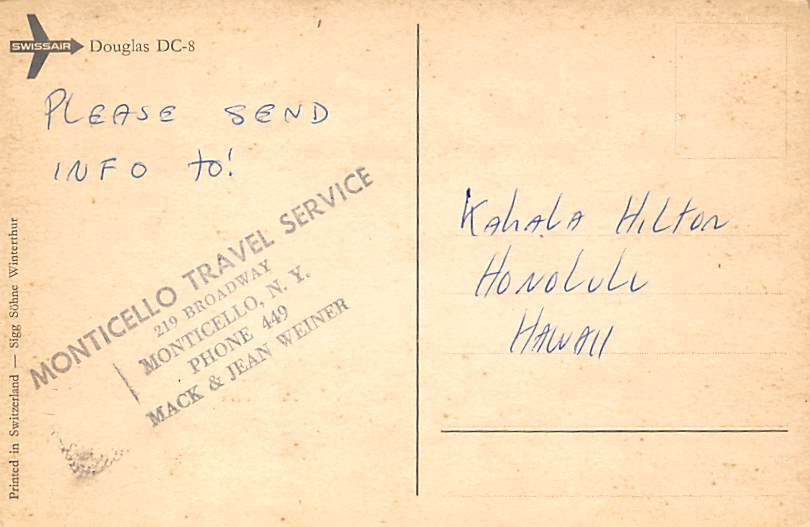 SWISSAIR Douglas DC-8
PLEASE SEND
INFO to!
MONTICELLO TRAVEL SERVICE
219 BROADWAY
MONTICELLO, N. Y.
PHONE 449
MACK & JEAN WEINER
Printed in Switzerland — Sigg Söhne Winterthur
Kahala Hilton
Honolulu
Hawaii